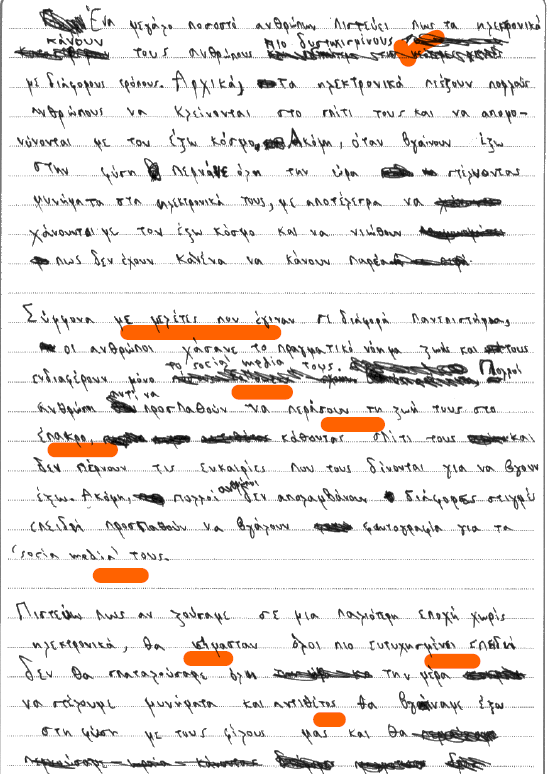 Ένα μεγάλο ποσοστό ανθρώπων πιστεύει πως τα ηλεκτρονικά
κάνουν τους ανθρώπους πιο δυστυχισμένους
με διάφορους τρόπους. Αρχικά, τα ηλεκτρονικά πιέζουν πολλούς
ανθρώπους να κλείνονται στο σπίτι τους και να απομο-
νώνονται με τον έξω κόσμο. Ακόμη, όταν βγαίνουν έξω
στην φύση περνάνε όλη την ώρα στέλνοντας
μυνήματα στα ηλεκτρονικά τους, με αποτέλεσμα να
χάνονται με τον έξω κόσμο και να νιώθουν
πως δεν έχουν κανένα να κάνουν παρέα
Σύμφωνα με μελέτες που έγιναν σε διάφορά πανεπιστήμια,
οι ανθρώποι χάσανε το πραγματικό νόημα ζωής και τους
ενδιαφέρουν μόνο το social media τους. Πολλοί
άνθρωποι αντί να προσπαθούν να περάσουν τη ζωή τους στο
έπακρο, κάθονται σπίτι τους και
δεν πέρνουν τις ευκαιρίες που τους δίνονται για να βγουν
έξω. Ακόμη, πολλοί άνθρωποι δεν απολαμβάνουν διάφορες στιγμές
επειδή προσπαθούν να βγάλουν φωτογραφία για τα
'social media' τους.
Πιστεύω πως αν ζούσαμε σε μια παλιότερη εποχή χωρίς
ηλεκτρονικά, θα είμασταν όλοι πιο ευτυχισμένοι επειδή
δεν θα σπαταλούσαμε όλη την μέρα
να στέλουμε μυνήματα και αντιθέτος θα βγαίναμε έξω
στη φύση με τους φίλους μας και θα